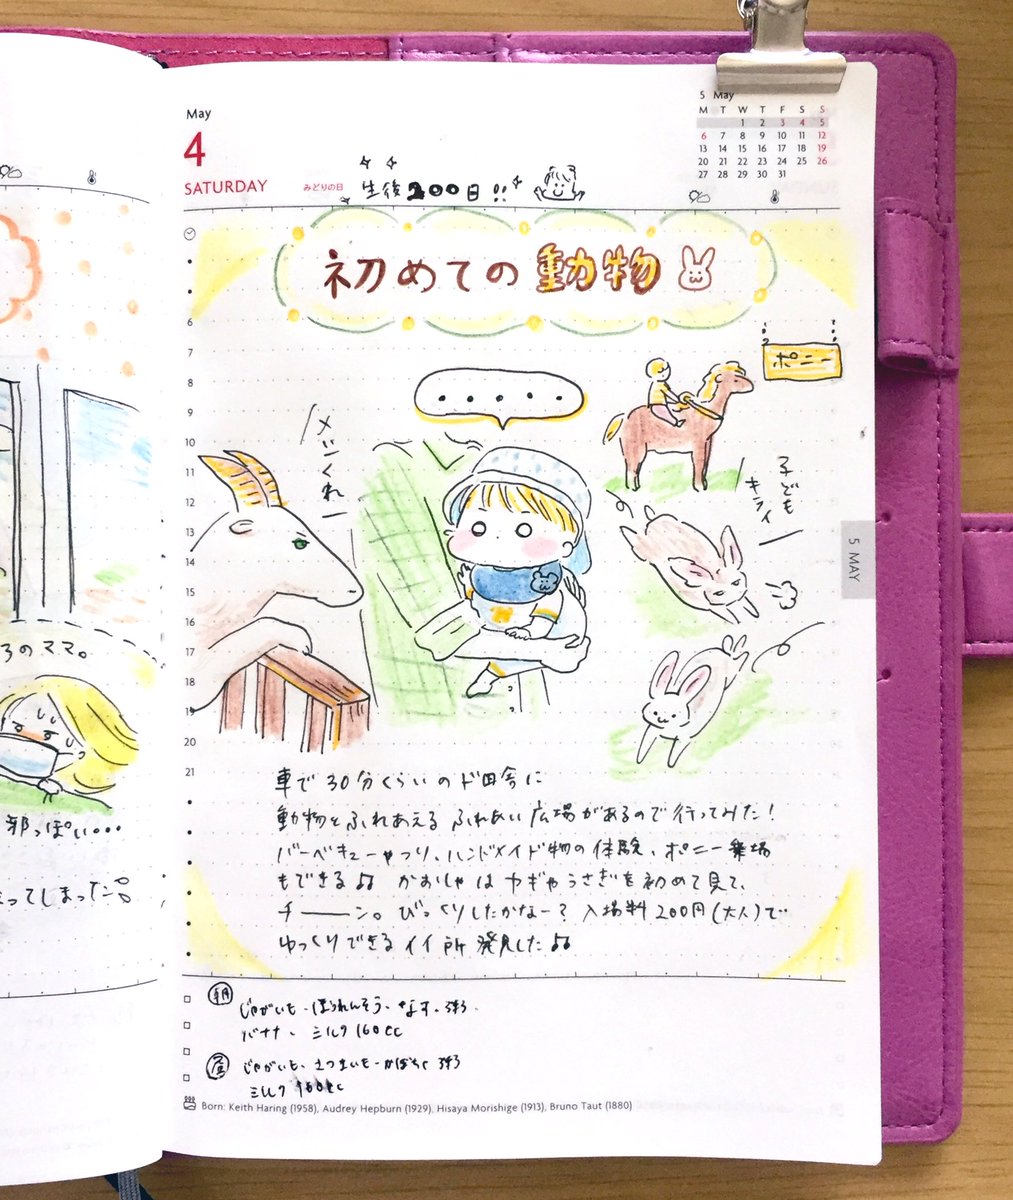 May
4
SATURDAY
みどりの日
生後200日!!
5 May
M T W T F S S
1 2 3 4 5
6 7 8 9 10 11 12
13 14 15 16 17 18 19
20 21 22 23 24 25 26
27 28 29 30 31
初めての動物
6
7
8
9
10
11
12
13
14
15
16
17
18
19
20
21
ポニー
・・・・・
メシくれー
子どもキライ
5 MAY
車で30分くらいのド田舎に
動物とふれあえるふれあい広場があるので行ってみた!
バーベキューやつり、ハンドメイド物の体験、ポニー乗場
もできる♫ かおしゃはヤギやうさぎを初めて見て、
チーーン。びっくりしたかなー? 入場料200円(大人)で
ゆっくりできるイイ所発見した♫
朝 じゃがいも、ほうれんそう、なす、粥
バナナ、ミルク160cc
昼 じゃがいも、さつまいも、かぼちゃ粥
ミルク160cc
Born: Keith Haring (1958), Audrey Hepburn (1929), Hisaya Morishige (1913), Bruno Taut (1880)
ろのママ。
邪っぽい…
ってしまった。